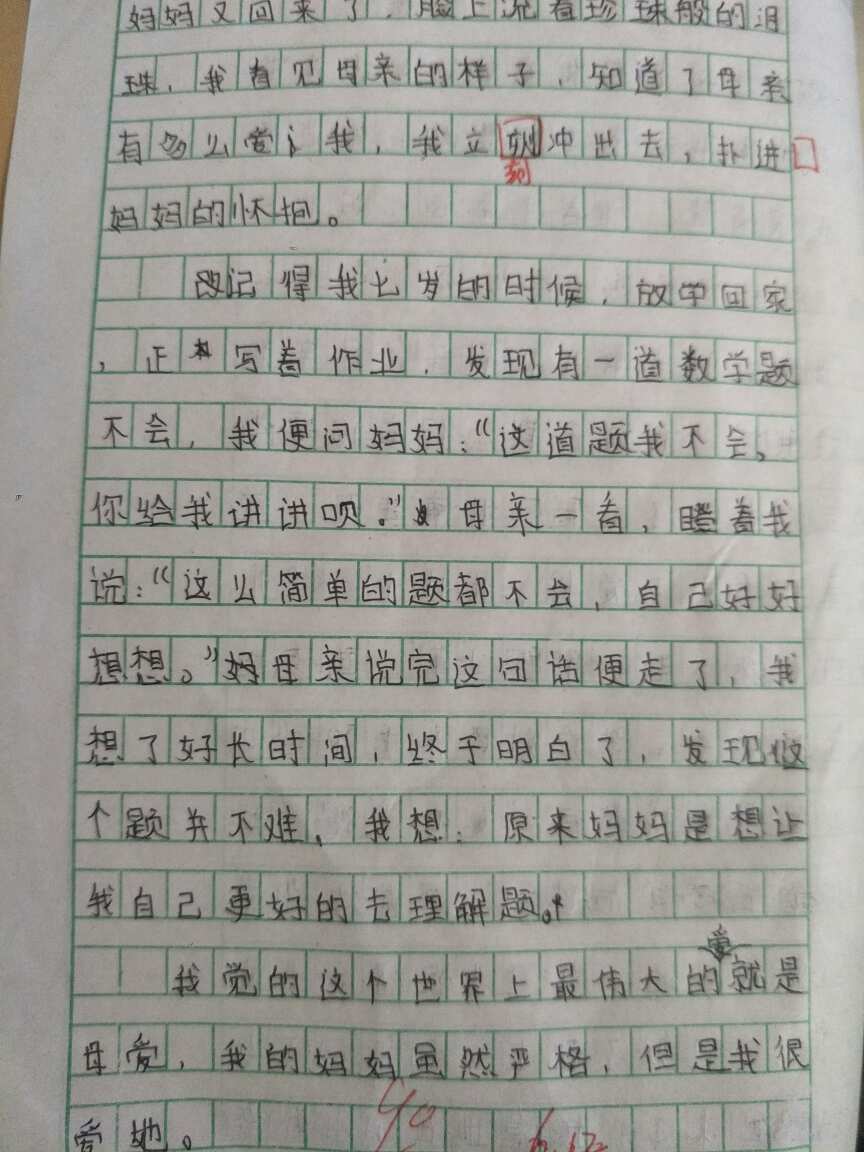 妈妈又回来了，脸上流着珍珠般的泪
珠，我看见母亲的样子，知道了母亲
有多么爱我，我立刻冲出去，扑进
刻
妈妈的怀抱。
记得我七岁的时候，放学回家
，正写着作业，发现有一道数学题
不会，我便问妈妈：“这道题我不会。
你给我讲讲呗。”母亲一看，瞪着我
说：“这么简单的题都不会，自己好好
想想。”妈母亲说完这句话便走了，我
想了好长时间，终于明白了，发现这
个题并不难、我想：原来妈妈是想让
我自己更好的去理解题。
我觉的这个世界上最伟大的爱就是
母爱，我的妈妈虽然严格，但是我很
爱她。
40